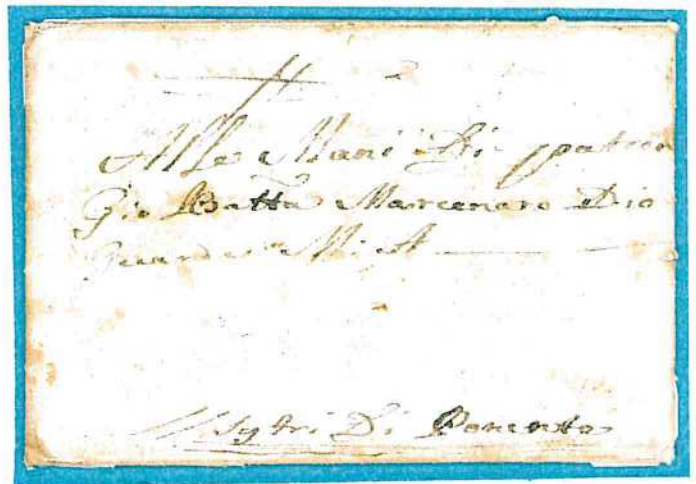 Alle Mani Di patron
Gio Batta Marcenaro Dio
Guardi
Systri Di Ponente